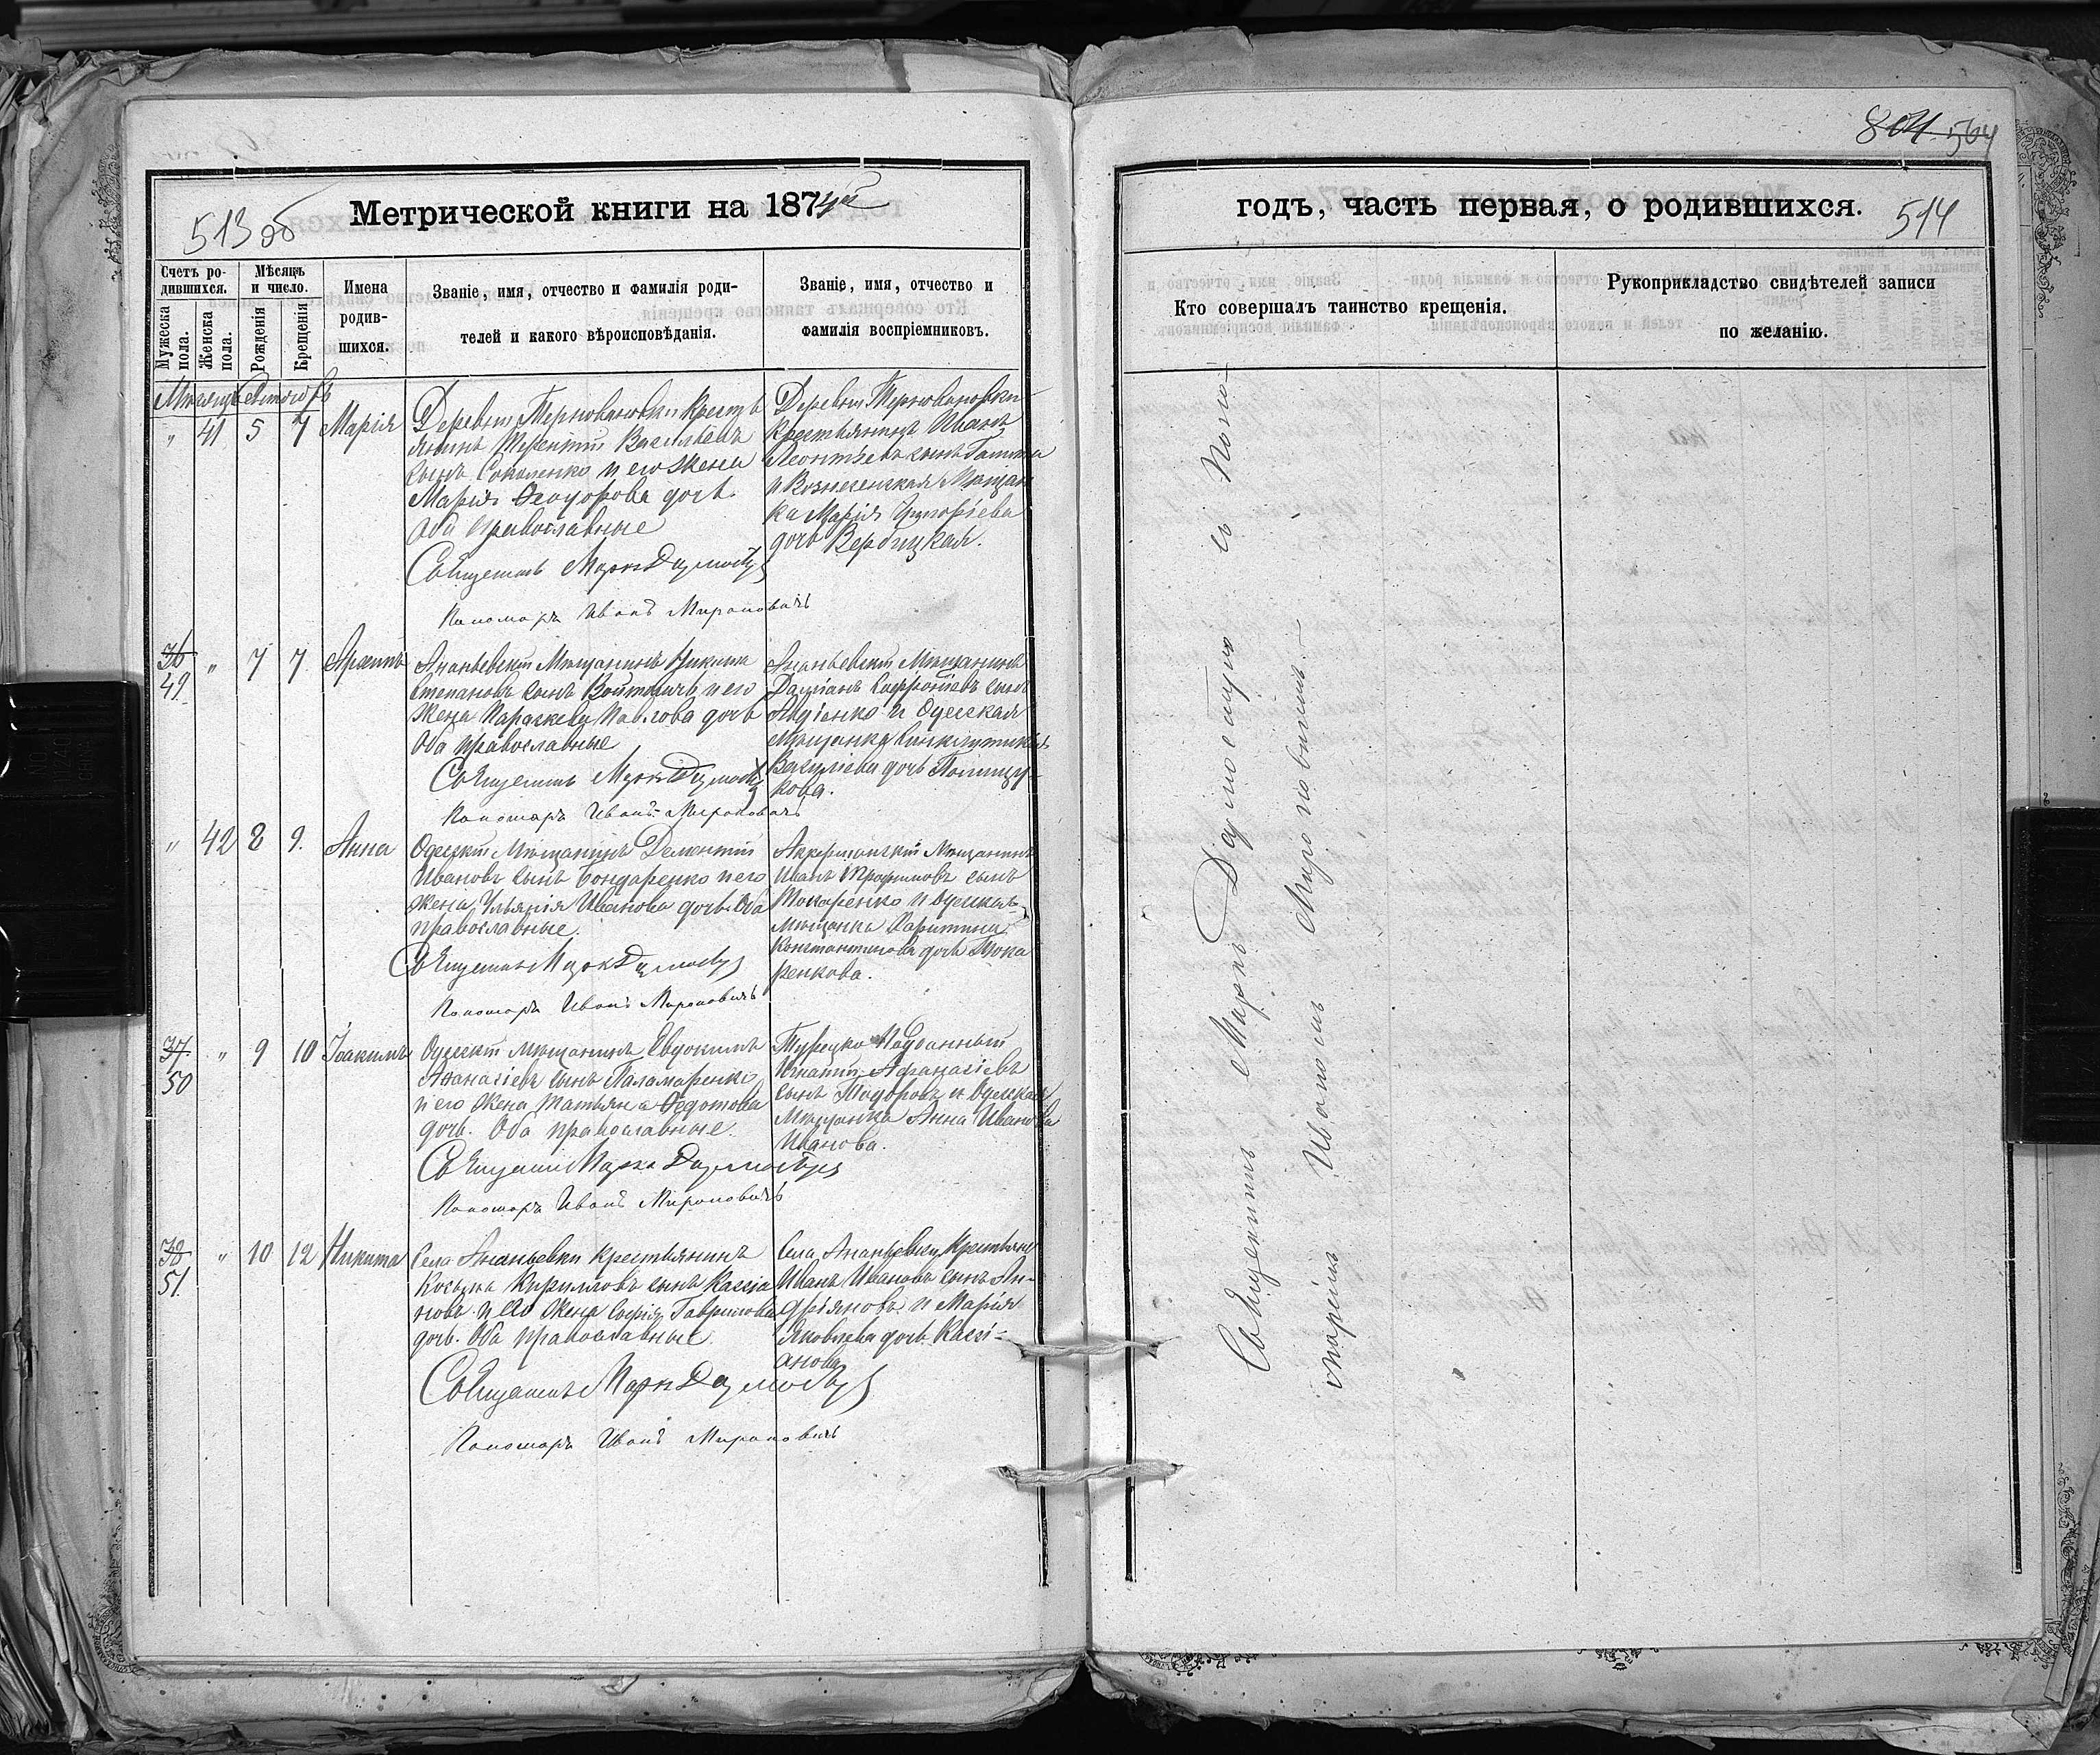 804 564
513 об
Метрической книги на 1874й
годъ, часть первая, о родившихся.
514
Счетъ ро-
дившихся.
Мужеска
пола.
Женска
пола.
Мѣсяцъ
и число.
Рожденія
Крещенія
Имена
родив-
шихся.
Званіе, имя, отчество и фамилія роди-
телей и какого вѣроисповѣданія.
Званіе, имя, отчество и
фамилія воспріемниковъ.
Кто совершалъ таинство крещенія.
Рукоприкладство свидѣтелей записи
по желанію.
Мѣсяцъ
" 41 5 7 Марія
Деревни Терновановки кресть
янинъ Терентій Васильевъ
сынъ Соколенко и его жена
Марія Ѳеодорова дочь.
Оба православные
Священникъ Маркъ
Пономарь Иванъ Мироновичъ
Деревни Терновановки
крестьянинъ Иванъ
Леонтьевъ сынъ
и Вознесенская Мѣщан
ка Марія Григоріева
дочь Вербицкая.
36
49 " 7 7. Архипъ
Ананьевскій Мѣщанинъ Никита
Степановъ сынъ и его
жена Параскева Павлова дочь
Оба православные
Священникъ Маркъ
Пономарь Иванъ Мироновичъ
Ананьевскій Мѣщанинъ
сынъ
и Одесская
Мѣщанка
дочь Полищу-
кова.
" 42 8 9. Анна
Одесскій Мѣщанинъ Дементій
Ивановъ сынъ Бондаренко и его
жена Ульянія Иванова дочь. Оба
православные.
Священникъ Маркъ
Пономарь Иванъ Мироновичъ
Аккерманскій Мѣщанинъ
Иванъ Трофимовъ сынъ
Токаренко и Одесская
Мѣщанка Харитина
Константинова дочь Тока
ренкова.
37
50 " 9 10 Іоакимъ
Одесскій мѣщанинъ Евдокимъ
Аѳанасіевъ сынъ Паламаренко
и его жена Татьяна Ѳедотова
дочь. Оба православные.
Священникъ Маркъ
Пономарь Иванъ Мироновичъ
Турецко Подданный
Игнатій Афанасіевъ
сынъ Тодоровъ и Одесская
Мѣщанка Анна Иванова
Иванова.
38
51. " 10 12 Никита
Села Ананьевки крестьянинъ
Косьма Кирилловъ сынъ Кассіа
новъ. и его жена Софія Гаврилова
дочь. Оба православные
Священникъ Маркъ
Пономарь Иванъ Мироновичъ
Села Ананьевки, Крестьяне
Иванъ Ивановъ сынъ Ан-
дріяновъ. и Марія
Яковлева дочь Кассі-
анова
Священникъ Маркъ съ Поно-
маремъ Иваномъ Мироновичемъ.